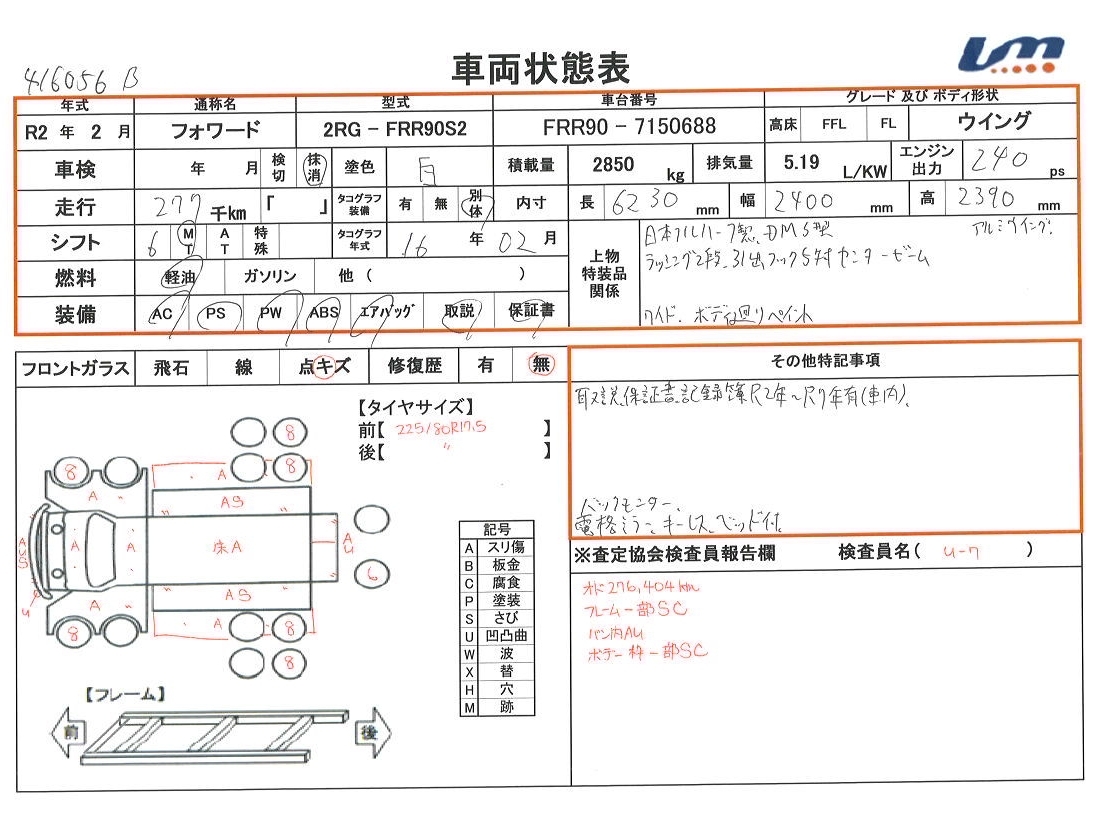 416056 B
車両状態表
UM
年式 通称名 型式 車台番号 グレード 及び ボディ形状
R2 年 2 月 フォワード 2RG - FRR90S2 FRR90 - 7150688 高床 FFL FL ウイング
車検 年 月 検切 抹消 塗色 白 積載量 2850 kg 排気量 5.19 L/KW エンジン出力 240 ps
走行 277 千km 「 」 タコグラフ装備 有 無 別体 内寸 長 6230 mm 幅 2400 mm 高 2390 mm
シフト 6 MT AT 特殊 タコグラフ年式 16 年 02 月
上物特装品関係
日本フルハーフ製、DMS型 アルミウイング、
ラッシング2段、引出フック5対センタービーム
ワイド、ボデー廻りペイント
燃料 軽油 ガソリン 他 ( )
装備 AC PS PW ABS エアバッグ 取説 保証書
フロントガラス 飛石 線 点キズ 修復歴 有 無
その他特記事項
取説保証書記録簿R2年~R7年有(車内)、
バックモニター、
電格ミラー、キーレス、ベッド付
【タイヤサイズ】
前【 225/80R17.5 】
後【 〃 】
8 8 8 6 8 8 8
A 〃 A A A 〃 A AS 床A AS A AU AUS U
記号
A スリ傷
B 板金
C 腐食
P 塗装
S さび
U 凹凸曲
W 波
X 替
H 穴
M 跡
【フレーム】
前 後
※査定協会検査員報告欄 検査員名( U-7 )
オド276,404km
フレーム一部SC
バン内AU
ボデー枠一部SC